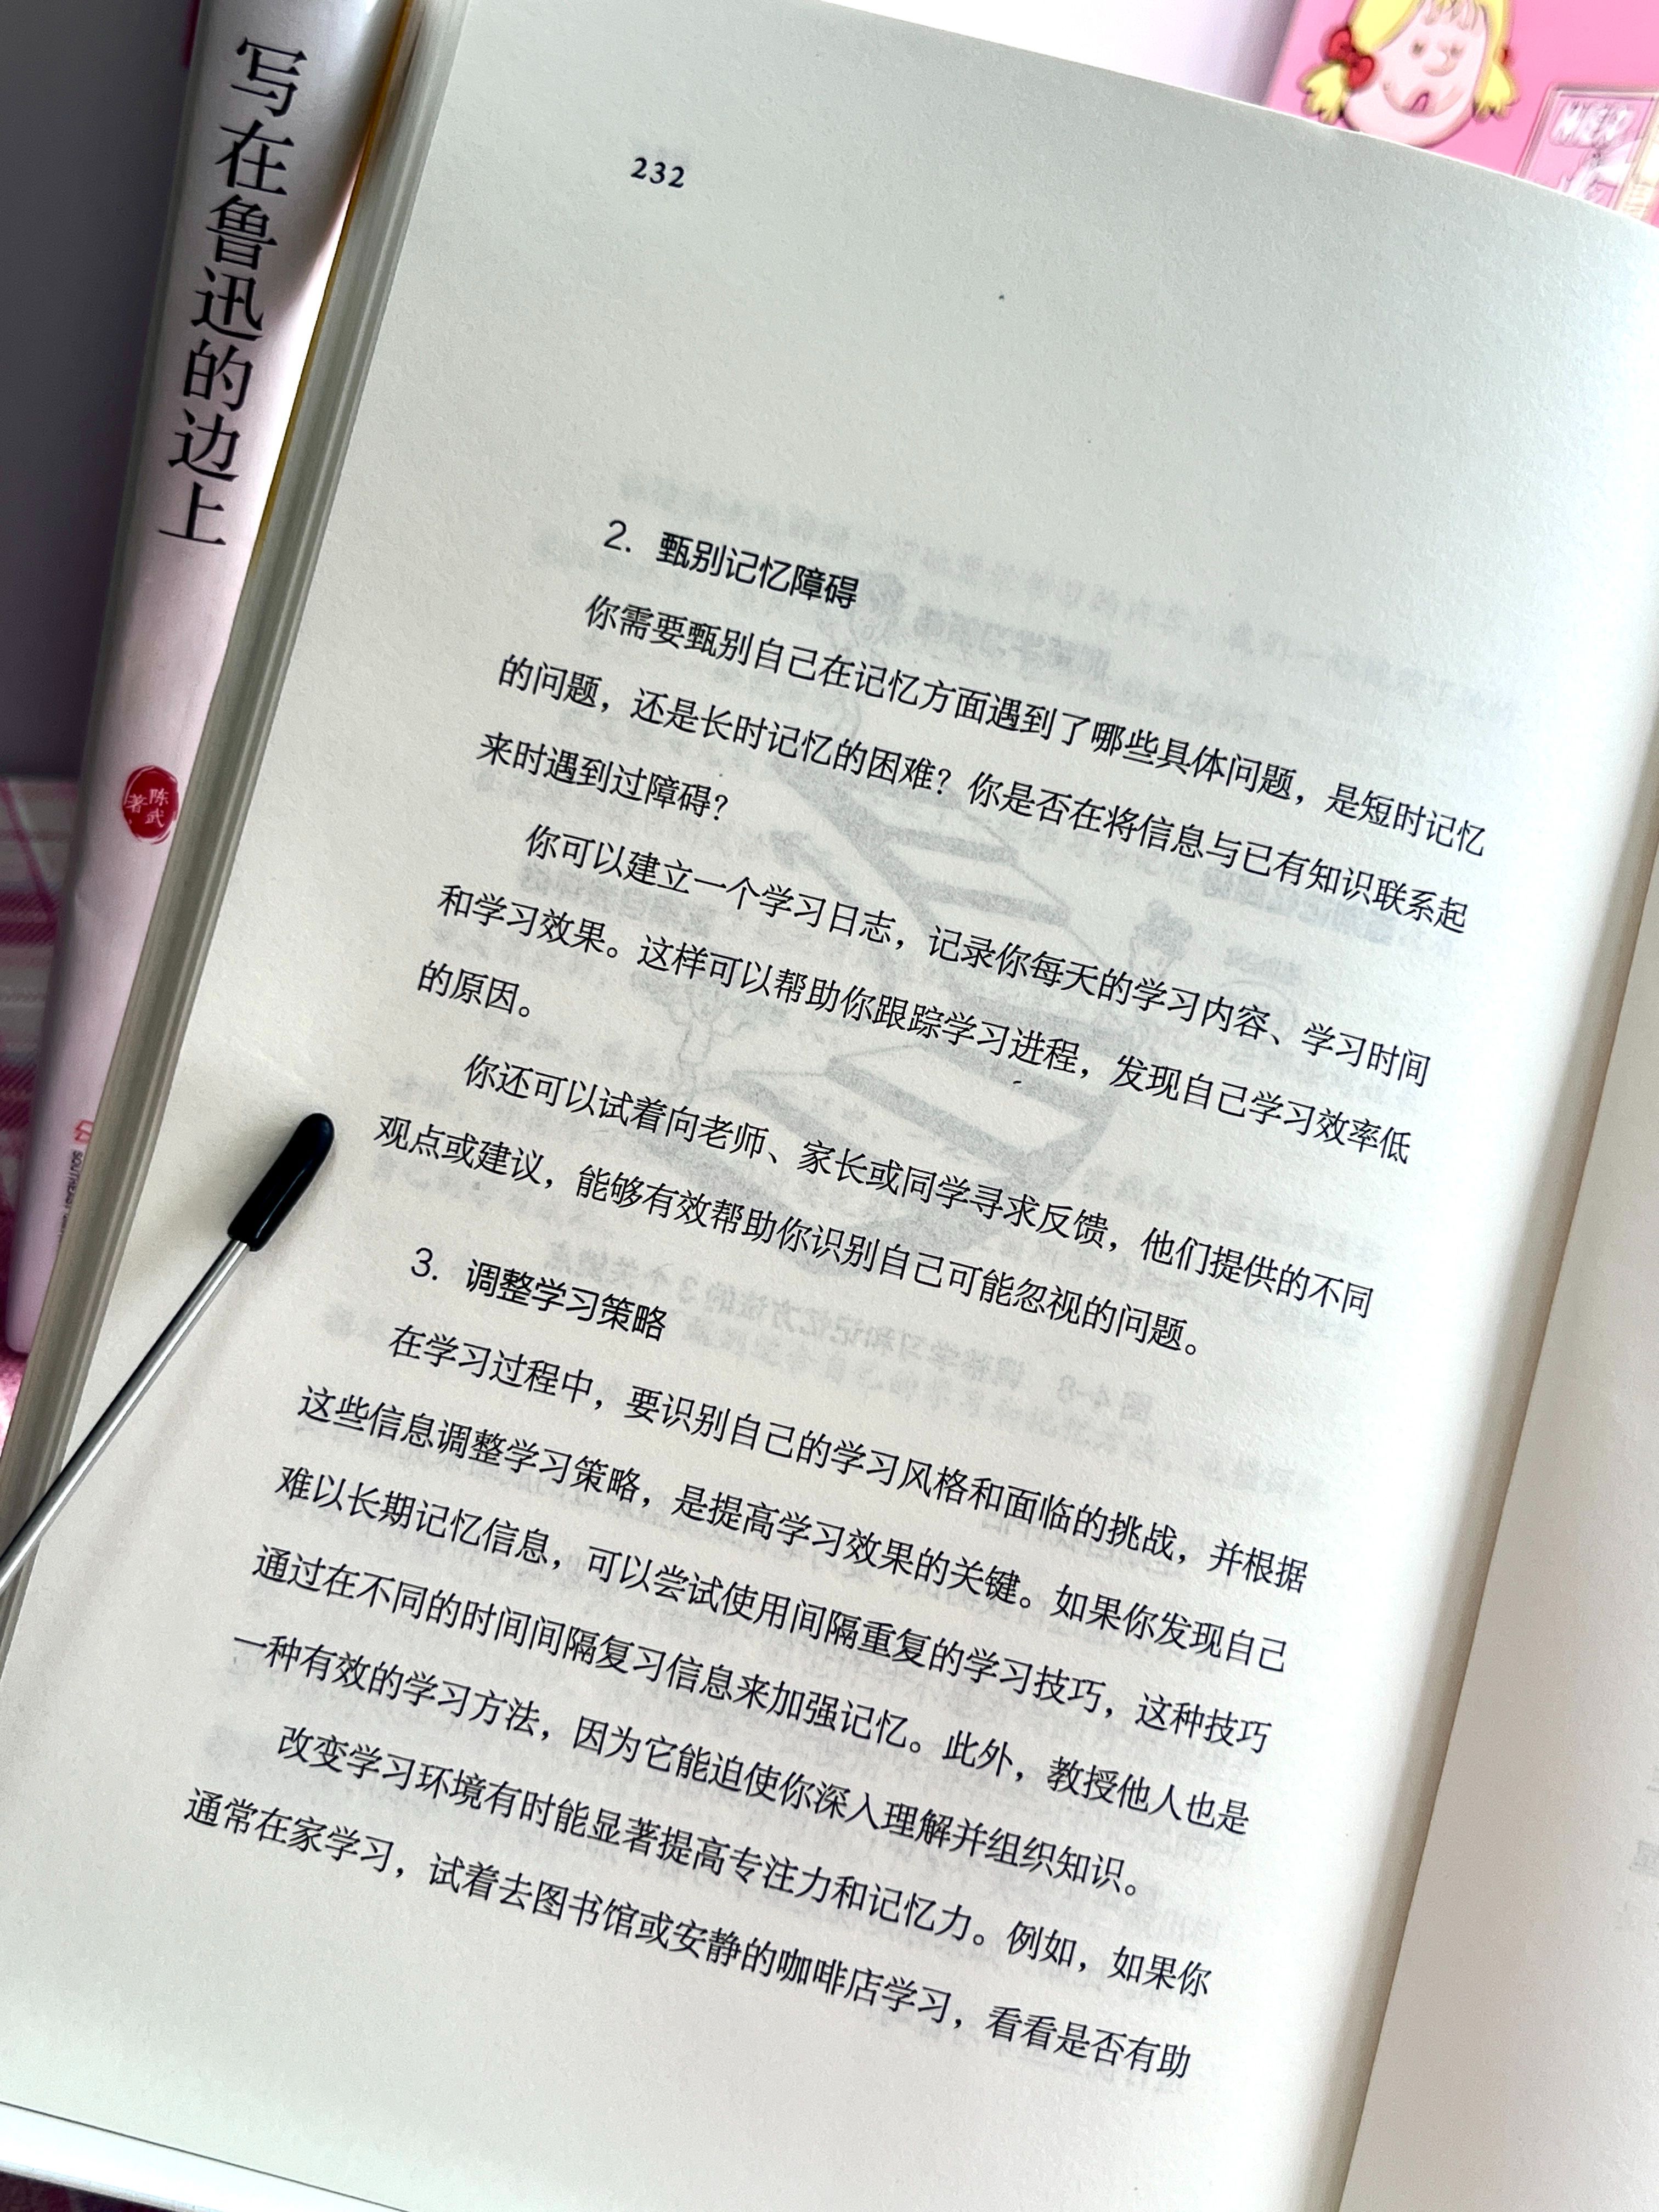 写在鲁迅的边上
陈武
著
232
2. 甄别记忆障碍
你需要甄别自己在记忆方面遇到了哪些具体问题，是短时记忆
的问题，还是长时记忆的困难？你是否在将信息与已有知识联系起
来时遇到过障碍？
你可以建立一个学习日志，记录你每天的学习内容、学习时间
和学习效果。这样可以帮助你跟踪学习进程，发现自己学习效率低
的原因。
你还可以试着向老师、家长或同学寻求反馈，他们提供的不同
观点或建议，能够有效帮助你识别自己可能忽视的问题。
3. 调整学习策略
在学习过程中，要识别自己的学习风格和面临的挑战，并根据
这些信息调整学习策略，是提高学习效果的关键。如果你发现自己
难以长期记忆信息，可以尝试使用间隔重复的学习技巧，这种技巧
通过在不同的时间间隔复习信息来加强记忆。此外，教授他人也是
一种有效的学习方法，因为它能迫使你深入理解并组织知识。
改变学习环境有时能显著提高专注力和记忆力。例如，如果你
通常在家学习，试着去图书馆或安静的咖啡店学习，看看是否有助